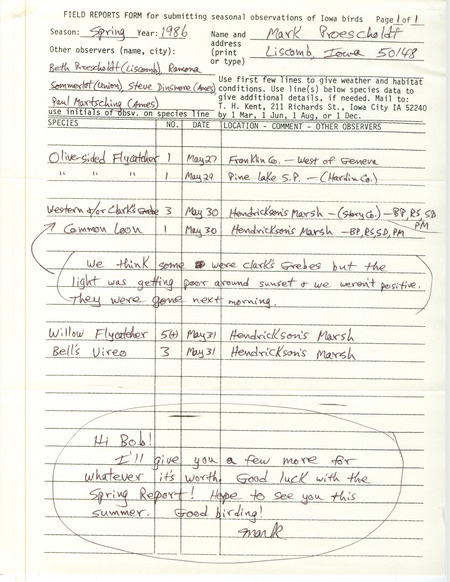 FIELD REPORTS FORM for submitting seasonal observations of Iowa birds Page 1 of 1
Season: Spring Year: 1986 Name and address (print or type) Mark Proescholdt
Liscomb, Iowa 50148
Other observers (name, city):
Beth Proescholdt (Liscomb) Ramona
Sommerlot (Union) Steve Dinsmore (Ames)
Paul Martsching (Ames)
Use first few lines to give weather and habitat
conditions. Use line(s) below species data to
give additional details, if needed. Mail to:
T. H. Kent, 211 Richards St., Iowa City IA 52240
use initials of obsv. on species line by 1 Mar, 1 Jun, 1 Aug, or 1 Dec.
SPECIES NO. DATE LOCATION - COMMENT - OTHER OBSERVERS
Olive-sided Flycatcher 1 May 27 Franklin Co. - West of Geneva
" " " 1 May 29 Pine Lake S.P. - (Hardin Co.)
Western &/or Clark's Grebe 3 May 30 Hendrickson's Marsh - (Story Co.) - BP, RS, SD
PM
Common Loon 1 May 30 Hendrickson's Marsh - BP, RS, SD, PM
We think some were Clark's Grebes but the
light was getting poor around sunset & we weren't positive.
They were gone next morning.
Willow Flycatcher 5(+) May 31 Hendrickson's Marsh
Bell's Vireo 3 May 31 Hendrickson's Marsh
Hi Bob!
I'll give you a few more for
whatever it's worth. Good luck with the
Spring Report! Hope to see you this
summer. Good birding!
Mark